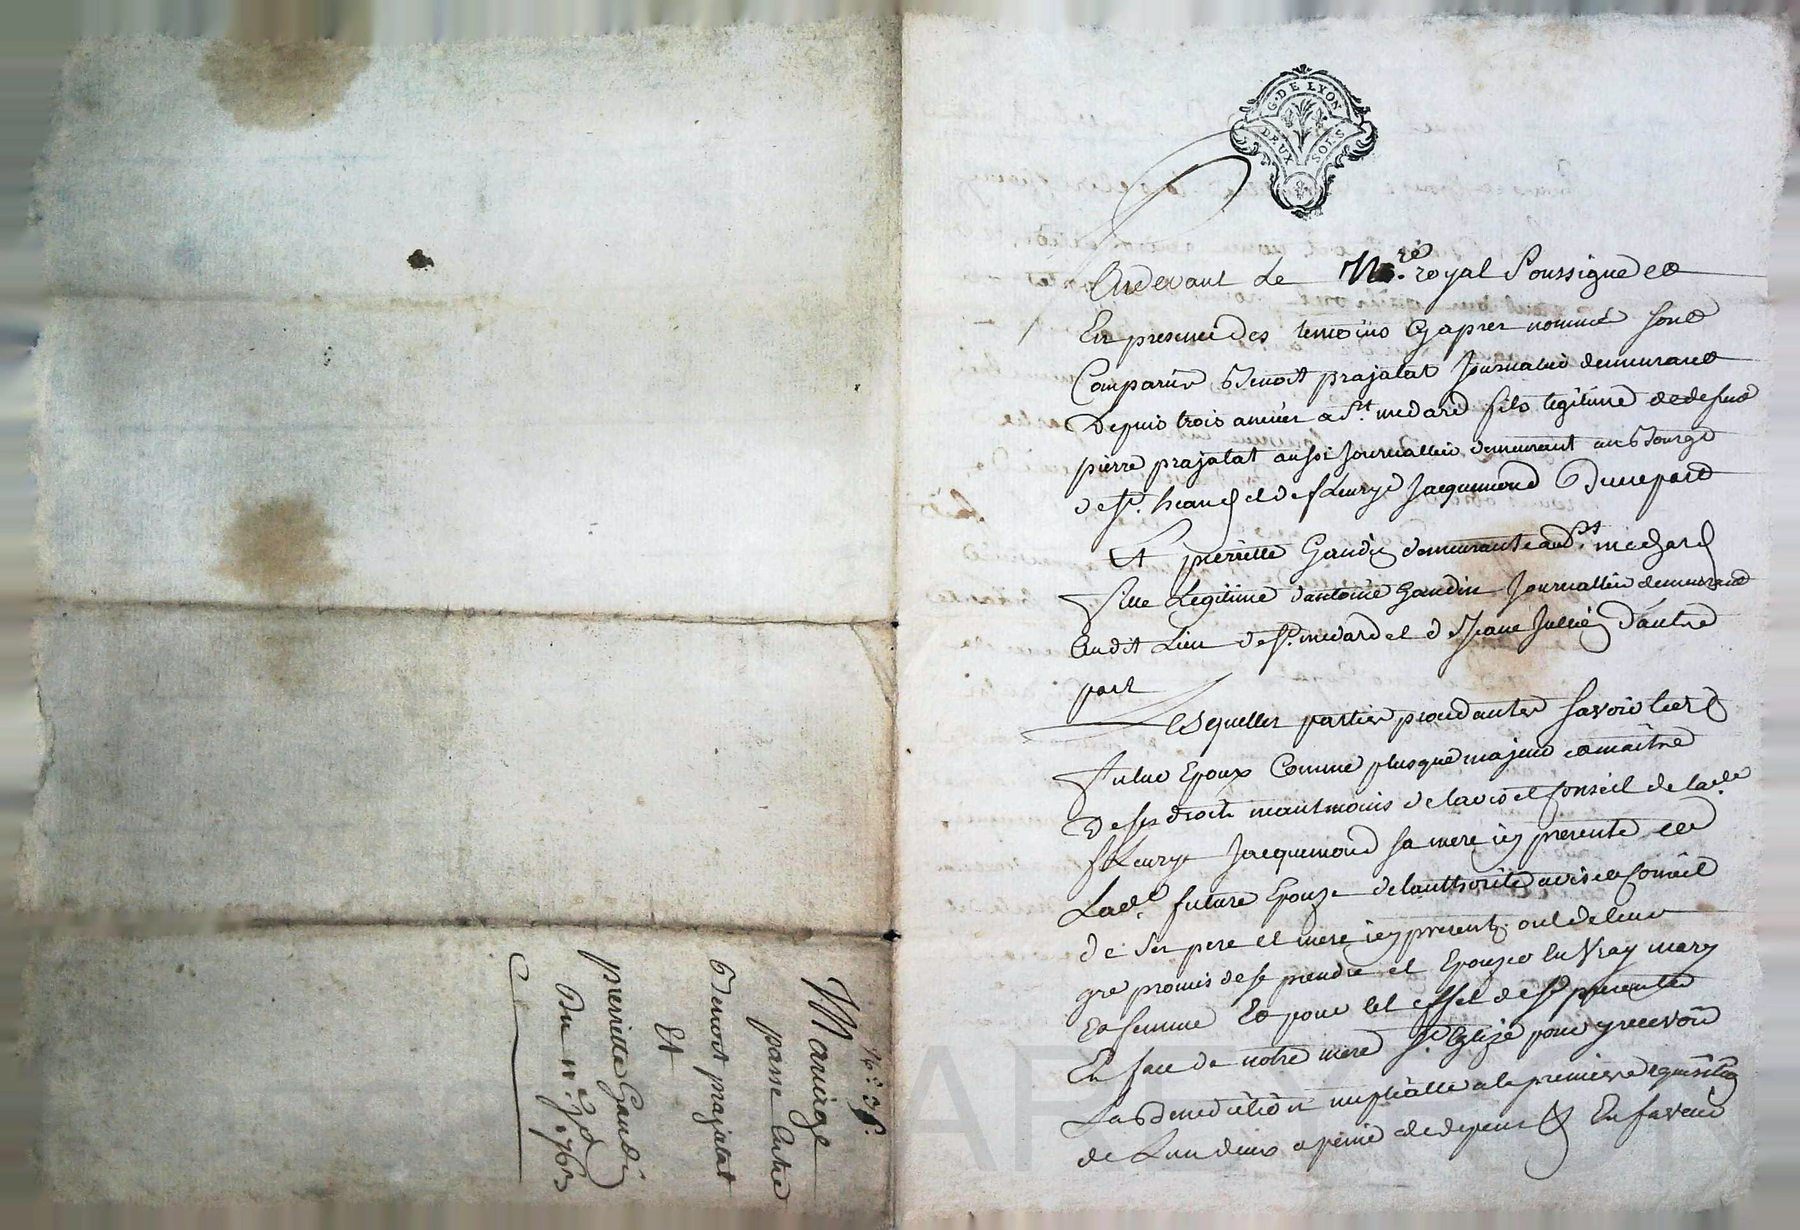 G. DE LYON
DEUX SOLS
Pardevant Le No.re royal Soussigné et
En presence des temoins Cy apres nommé sont
Comparus Benoit prajalat Journalié demeurant
Depuis trois années a St medard fils legitime de defunt
pierre prajalat aussi Journallier demeurant au Bourg
de St. heand et de fleurye Jacquemond D'une part
Et pierrette Gaudin demeurante audt. St medard
fille Legitime d'antoine Gaudin Journallier demeurant
Audit Lieu de St. medard et de Jeane Jullien d'autre
part
Lesquelles parties procedantes savoir led.
futur Epoux Comme plusque majeur et maitre
De ses droits neantmoins de l'avis et Conseil de lade.
fleurye Jacquemond sa mere icy presente et
Lade. future Epouze de l'authorité avis et Conseil
de ses pere et mere icy presents ont de leur
gré promis de se prendre et Epouzer en Vray mary
et femme Et pour cet effet de se presenter
En face de notre mere Ste. Eglize pour y recevoir
La Benediction nuptialle a la premiere requisition
de L'un deux a peine de depens & En faveur
Mariage
passé Entre
Benoit prajalat
Et
pierrette Gaudin
Du 1763